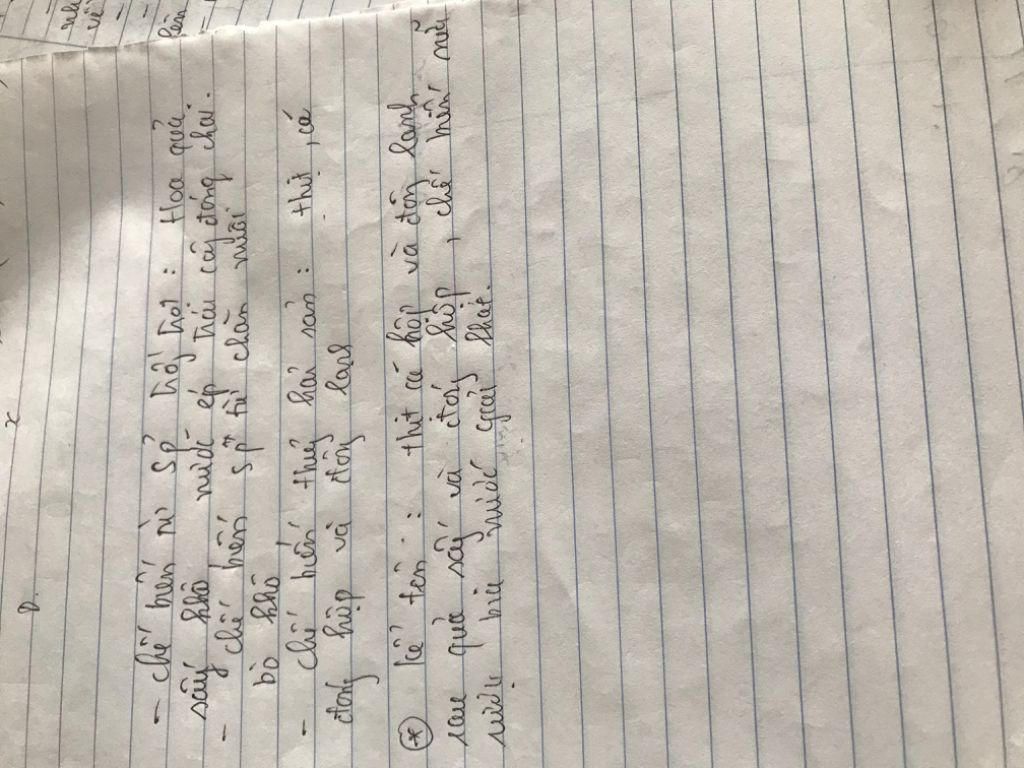 - chế biến từ sp trồng trọt : Hoa quả
sấy khô nước ép trái cây đóng chai.
- chế biến sp từ chăn nuôi
bò khô
- chế biến thuỷ hải sản : thịt, cá
đóng hộp và đông lạnh
* kể tên : thịt cá hộp và đông lạnh
rau quả sấy và đóng hộp, chế biến sữa
bia nước giải khát.